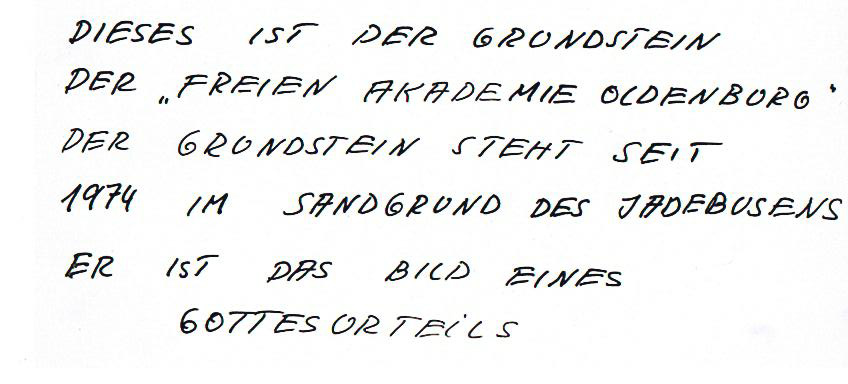 DIESES IST DER GRUNDSTEIN
DER „FREIEN AKADEMIE OLDENBURG“
DER GRUNDSTEIN STEHT SEIT
1974 IM SANDGRUND DES JADEBUSENS
ER IST DAS BILD EINES
GOTTESURTEILS